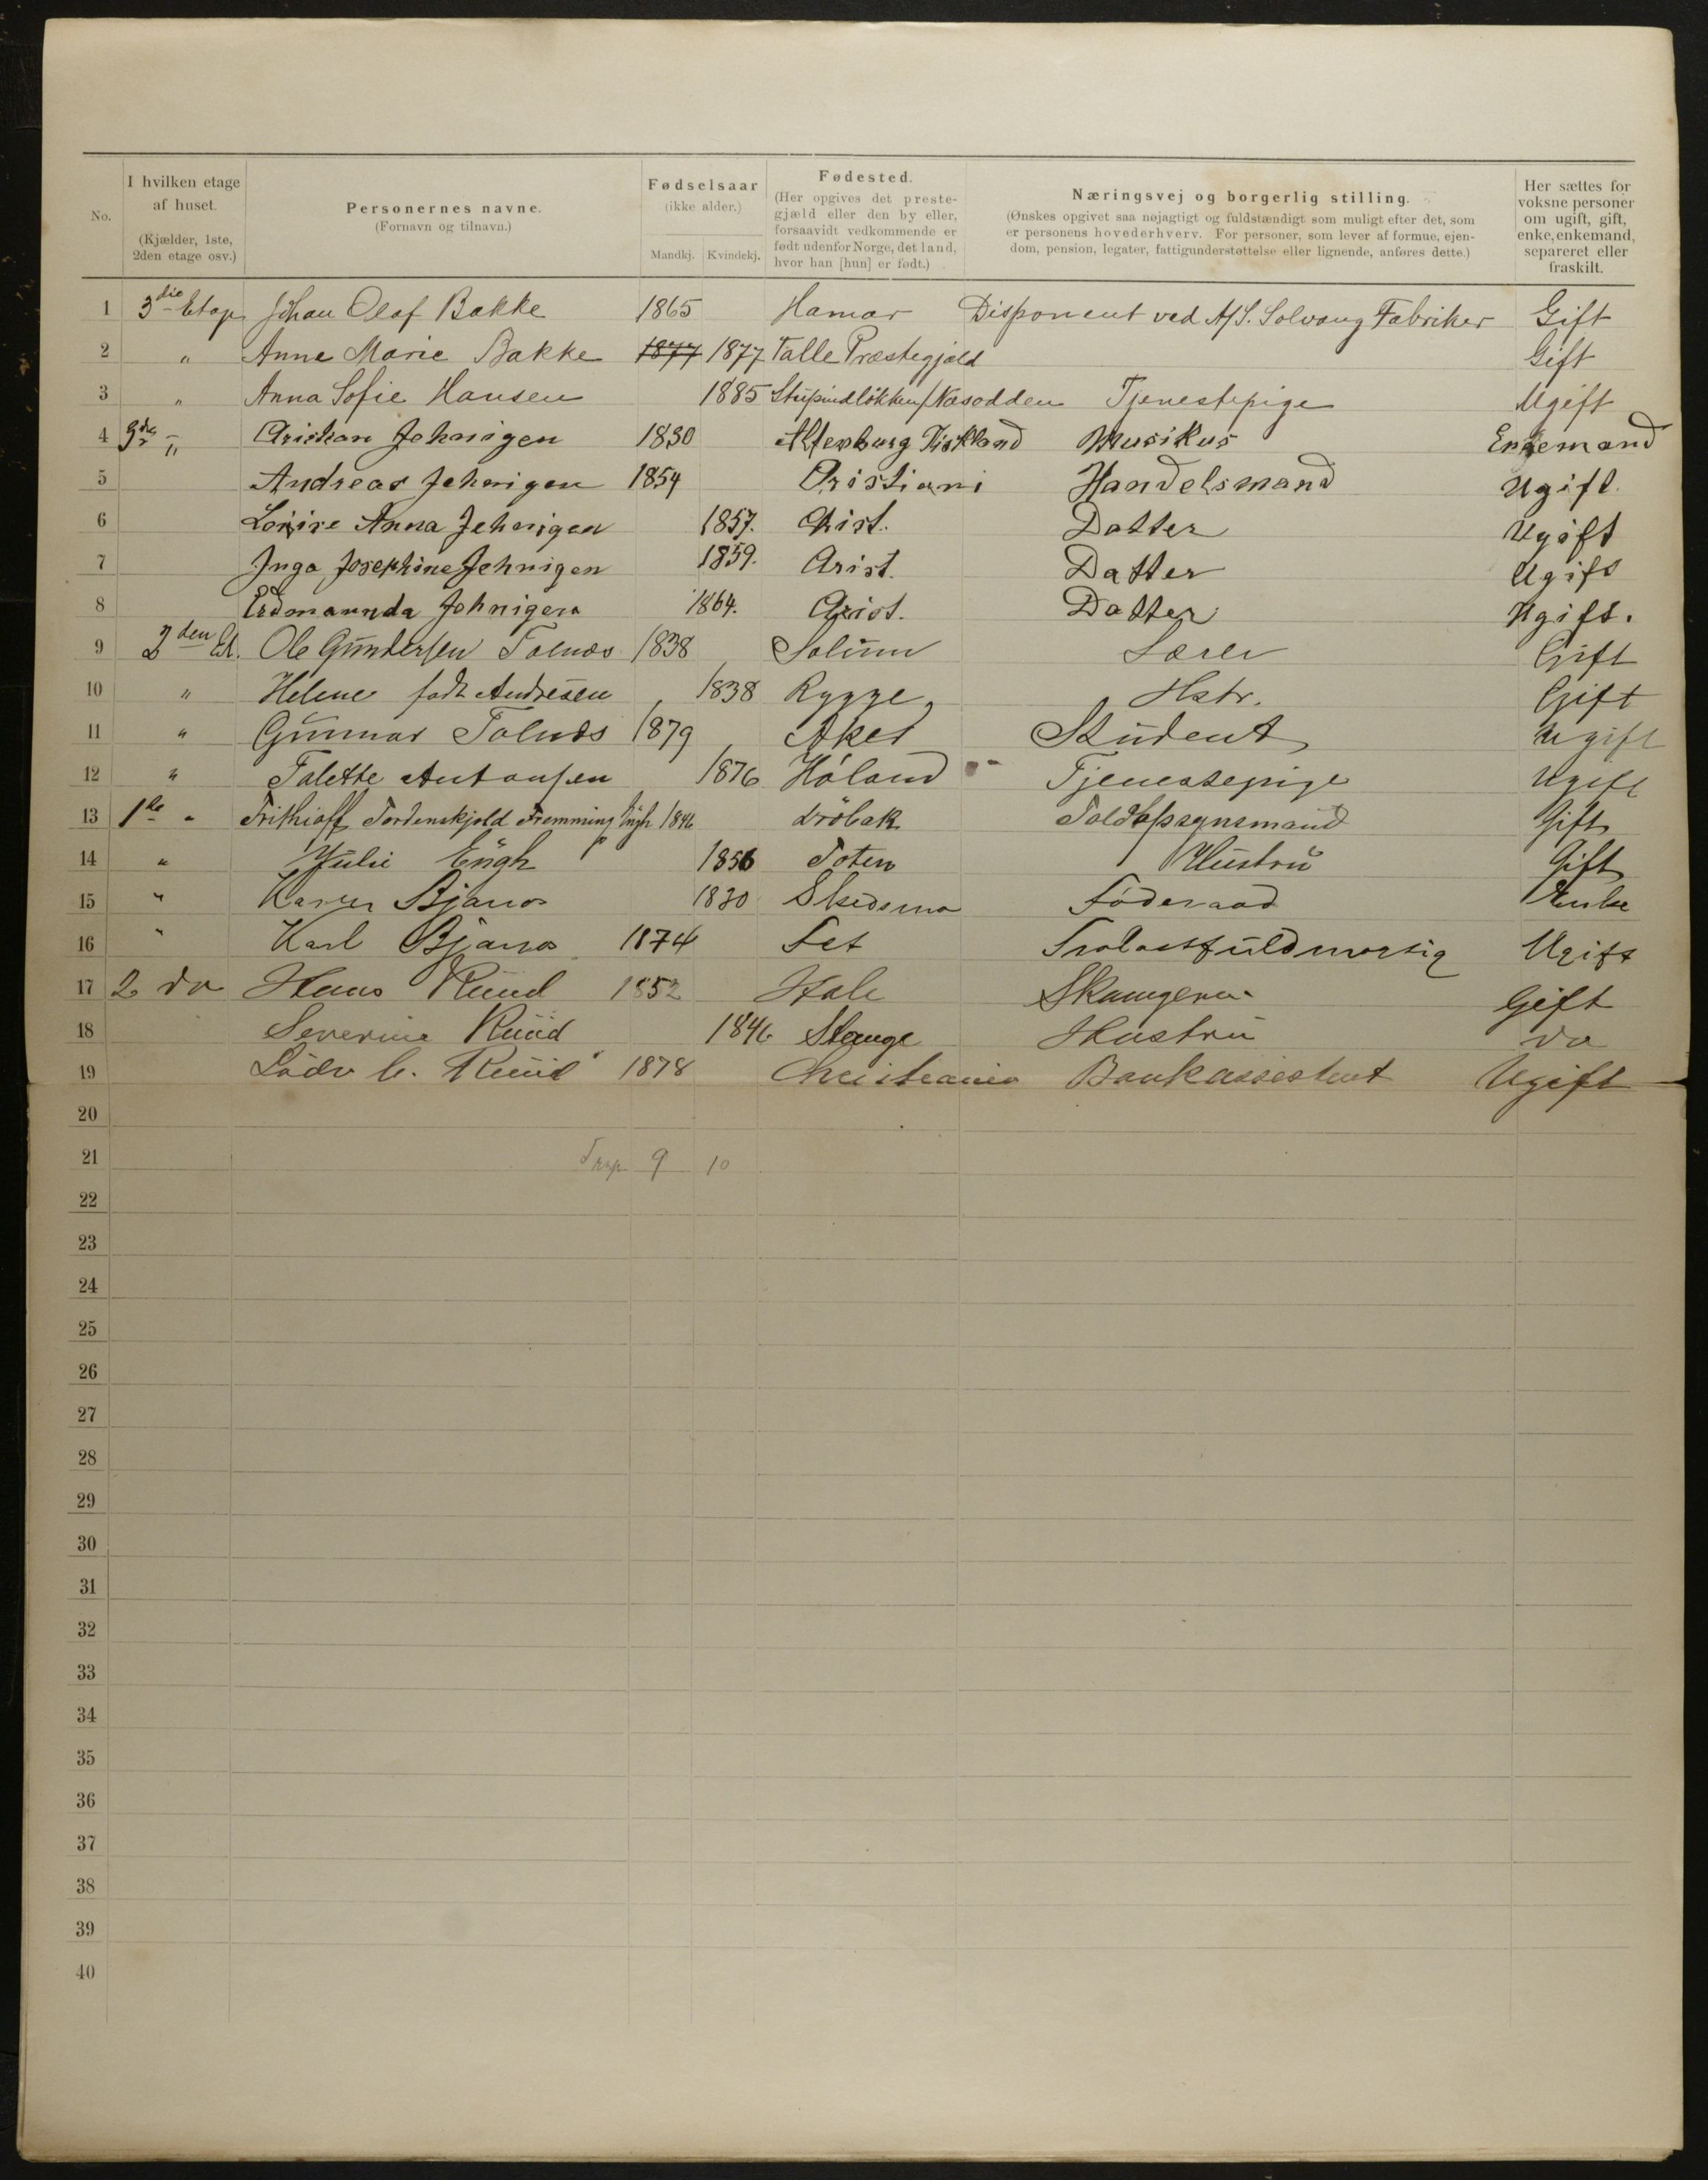 No.
I hvilken etage af huset. (Kjælder, 1ste, 2den etage osv.)
Personernes navne. (Fornavn og tilnavn.)
Fødselsaar (ikke alder.) Mandkj. Kvindekj.
Fødested. (Her opgives det prestegjæld eller den by eller, forsaavidt vedkommende er født udenfor Norge, det land, hvor han [hun] er født.)
Næringsvej og borgerlig stilling. (Ønskes opgivet saa nøjagtigt og fuldstændigt som muligt efter det, som er personens hovederhverv. For personer, som lever af formue, ejendom, pension, legater, fattigunderstøttelse eller lignende, anføres dette.)
Her sættes for voksne personer om ugift, gift, enke, enkemand, separeret eller fraskilt.
1 3die Etage Johan Olaf Bakke 1865 Hamar Disponent ved A/S. Solvang Fabriker Gift
2 " Anne Marie Bakke 1877 1877 Talle Præstegjæld Gift
3 " Anna Sofie Hansen 1885 Næsodden Tjenestepige Ugift
4 3de " Cristian Jehnigen 1830 Altenburg Musikus Enkemand
5 Andreas Jehnigen 1854 Cristiani Handelsmand Ugift.
6 Louise Anna Jehnigen 1857. Christ. Datter Ugift
7 Inga Josephine Jehnigen 1859. Crist. Datter Ugift
8 Erdmannda Jehnigen 1864. Crist. Datter Ugift.
9 2den Et. Ole Gundersen Tolnæs 1838 Solum Lærer Gift
10 " Helene født Andresen 1838 Rygge Hstr. Gift
11 " Gunnar Tolnæs 1879 Aker Student Ugift
12 " Talette Antonsen 1876 Höland Tjenestepige Ugift
13 1ste " Frithioff Tordenskjold Flemming Engh 1846 Dröbak Toldopsynsmand Gift
14 " Julie Engh 1856 Toten Hustru Gift
15 " Karen Bjanes 1830 Skedsmo Föderaad Enke
16 " Karl Bjanes 1874 Fet Trælastfuldmægtig Ugift
17 2 do Hans Ruud 1852 Hole Gift
18 Severine Ruud 1846 Stange Hustru do
19 C. Ruud 1878 Christiania Bankassistent Ugift
20
21 9 10
22
23
24
25
26
27
28
29
30
31
32
33
34
35
36
37
38
39
40